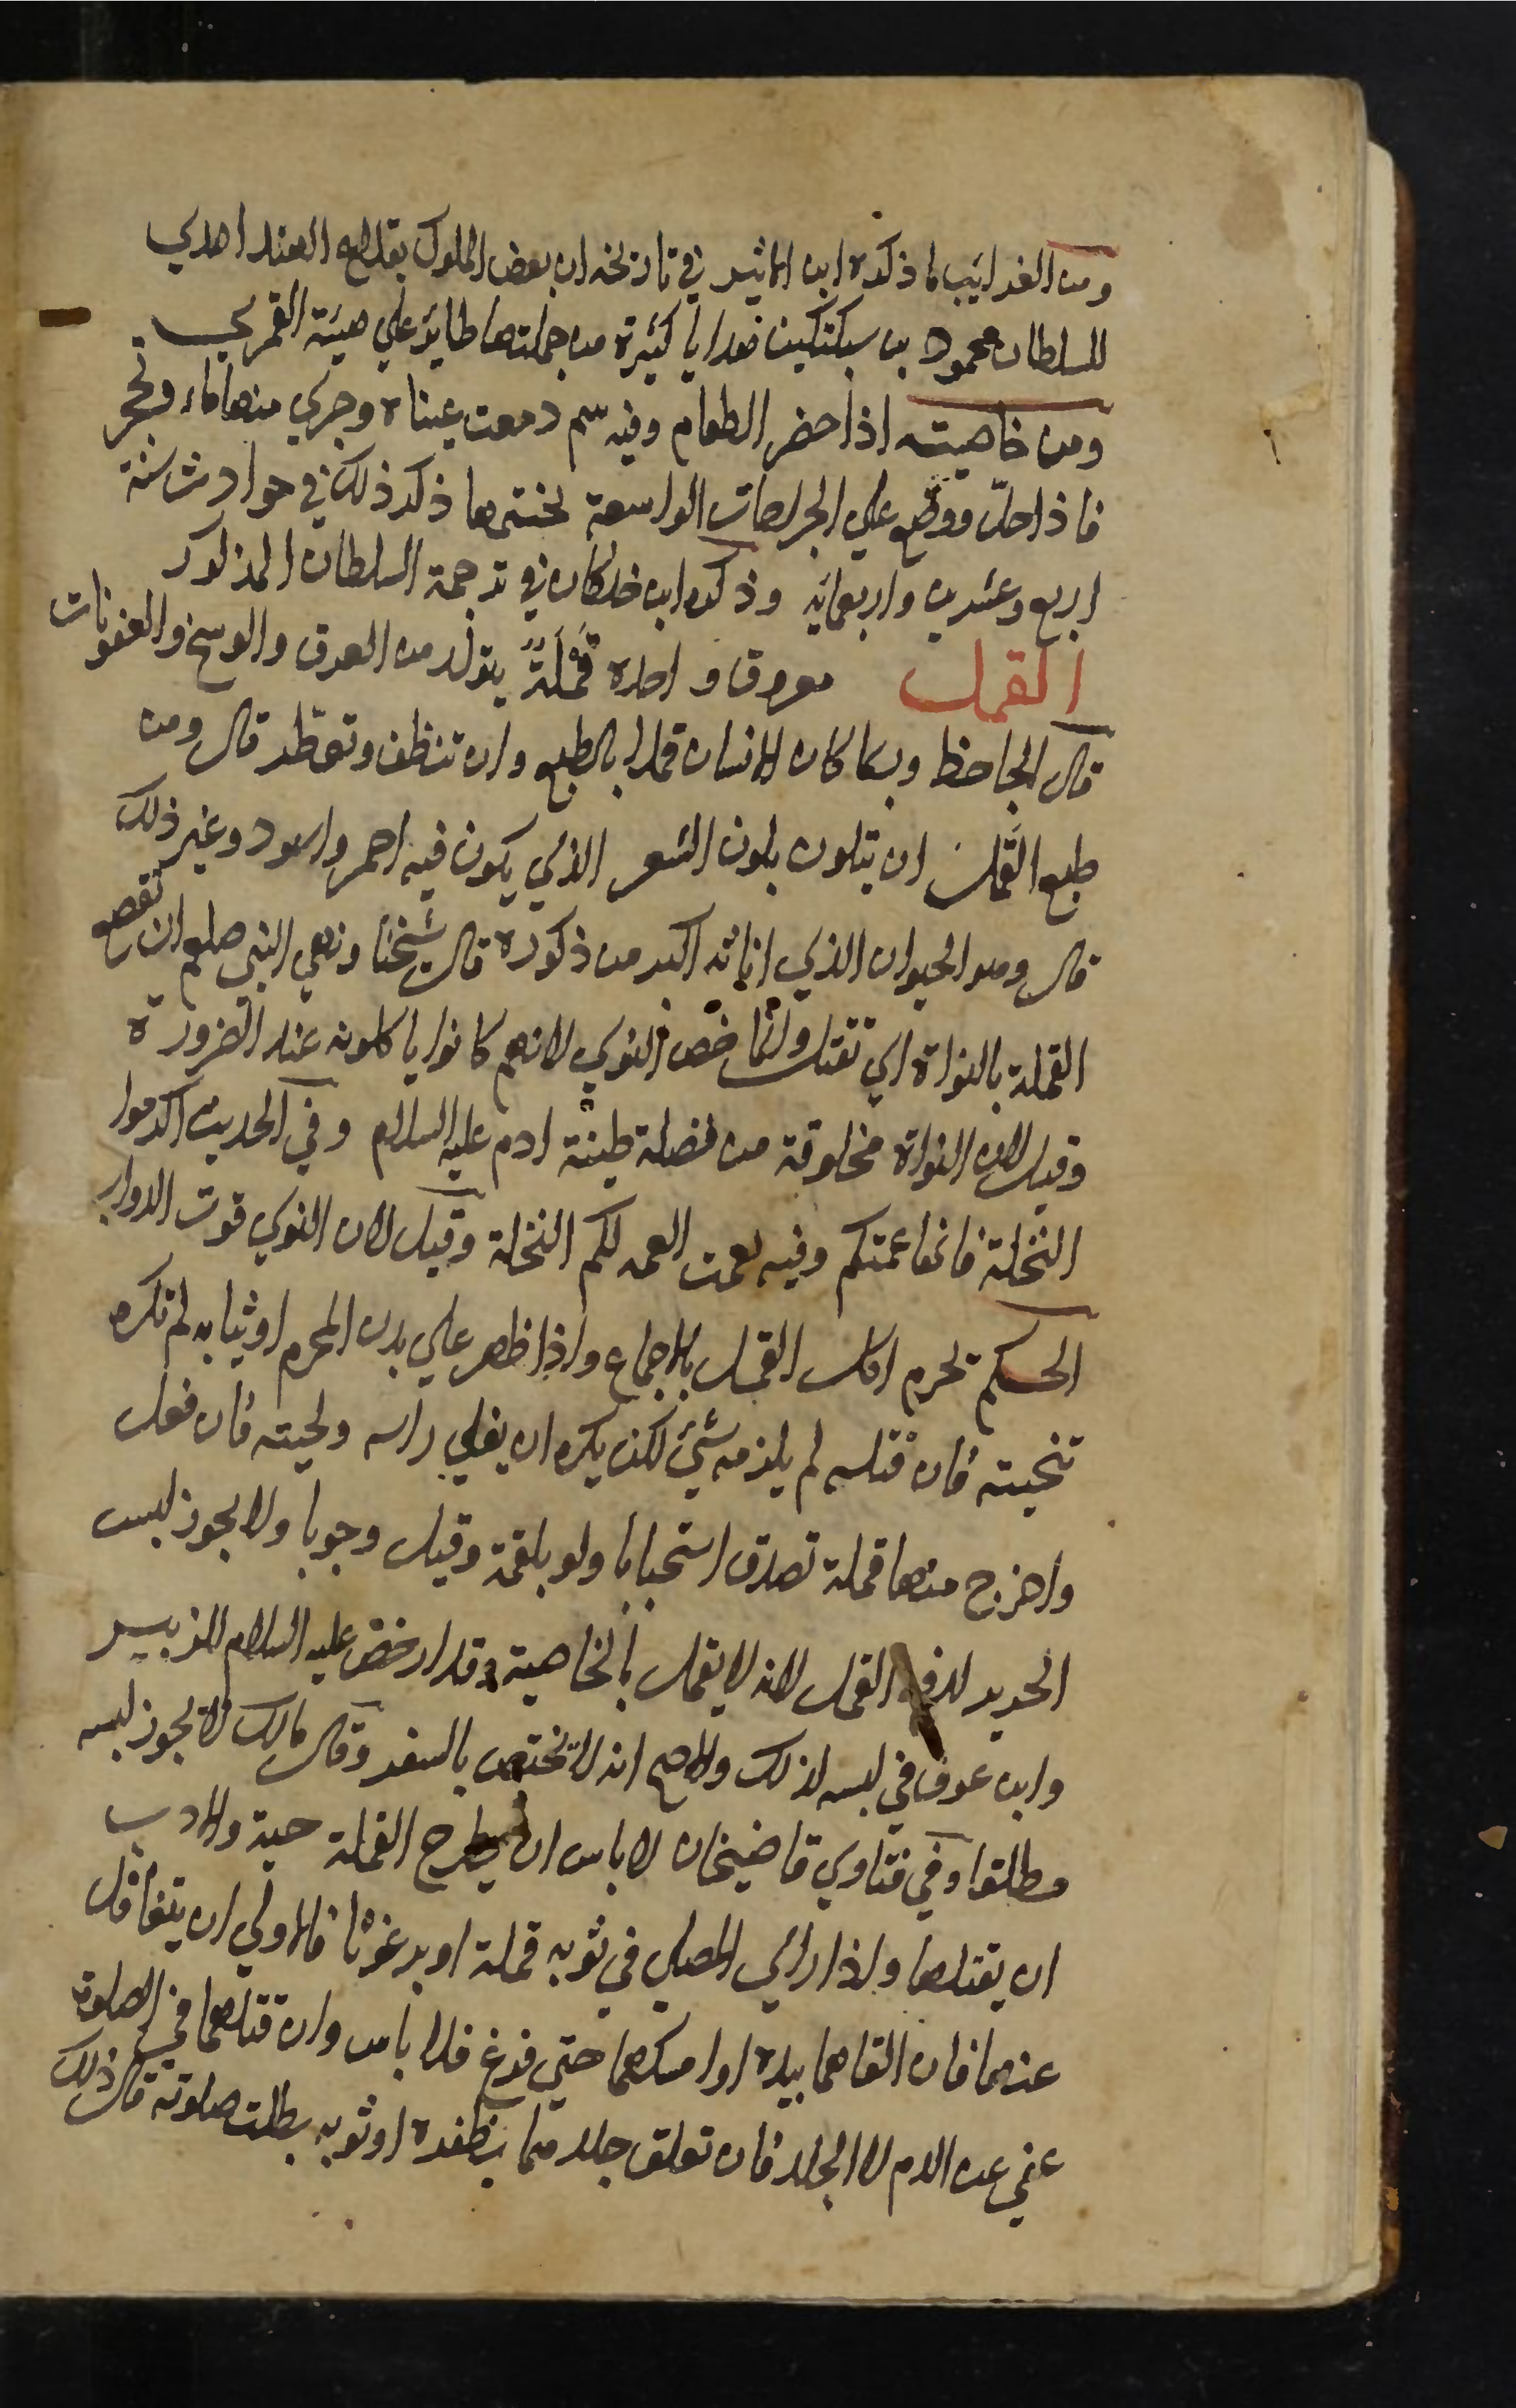 ومن الغرائب ما ذكره ابن الاثير في تاريخه ان بعض الملوك بقلاع الهند اهدي
للسلطان محمود بن سبكتكين هدايا كثيرة من جملتها طائر علي هيئة القمري
ومن خاصيته اذا حضر الطعام وفيه سم دمعت عيناه وجري منها ماء وتحجر
فاذا حل ووضع علي الجراحات الواسعة لختمها ذكر ذلك في حوادث سنة
اربع وعشرين واربعمائة وذكره ابن خلكان في ترجمة السلطان المذكور
القمل معروف واحده قَمْلَةٌ يتولد من العرق والوسخ والعفونات
قال الجاحظ وربما كان الانسان قملا بالطبع وان تنظف وتعطر قال ومن
طبع القمل ان يتلون بلون الشعر الذي يكون فيه احمر واسود وغير ذلك
قال وهو الحيوان الذي اناثه اكبر من ذكوره قال شيخنا ونهي النبي صلعم ان تقصع
القملة بالنواة اي تقتل وانما خص النوي لانهم كانوا ياكلونه عند الضرورة
وقيل لان النواة مخلوقة من فضلة طينة ادم عليه السلام وفي الحديث اكرموا
النخلة فانها عمتكم وفيه نعمت العمه لكم النخلة وقيل لان النوي قوت الدواب
الحكم تحرم اكل القمل بالاجماع واذا ظهر علي بدن المحرم او ثيابه لم تكره
تنحيته فان قتله لم يلزمه شئ لكن يكره ان يفلي راسه ولحيته فان فعل
واخرج منها قملة تصدق استحبابا ولو بلقمة وقيل وجوبا ولا يجوز لبس
الحرير لدفع القمل لانه لا يقمل بالخاصية وقد ارخص عليه السلام للزبير
وابن عوف في لبسه لذلك والاصح انه لا يختص بالسفر وقال مالك لا يجوز لبسه
مطلقا وفي فتاوي قاضيخان لا باس ان يطرح القملة حية والادب
ان يقتلها واذا راي المصلي في ثوبه قملة او برغوثا فالاولي ان يتغافل
عنهما فان القاهما بيده او امسكهما حتي فرغ فلا باس وان قتلهما في الصلوة
عفي عن الدم لا الجلد فان تعلق جلدهما بظفره او ثوبه بطلت صلوته قال ذلك